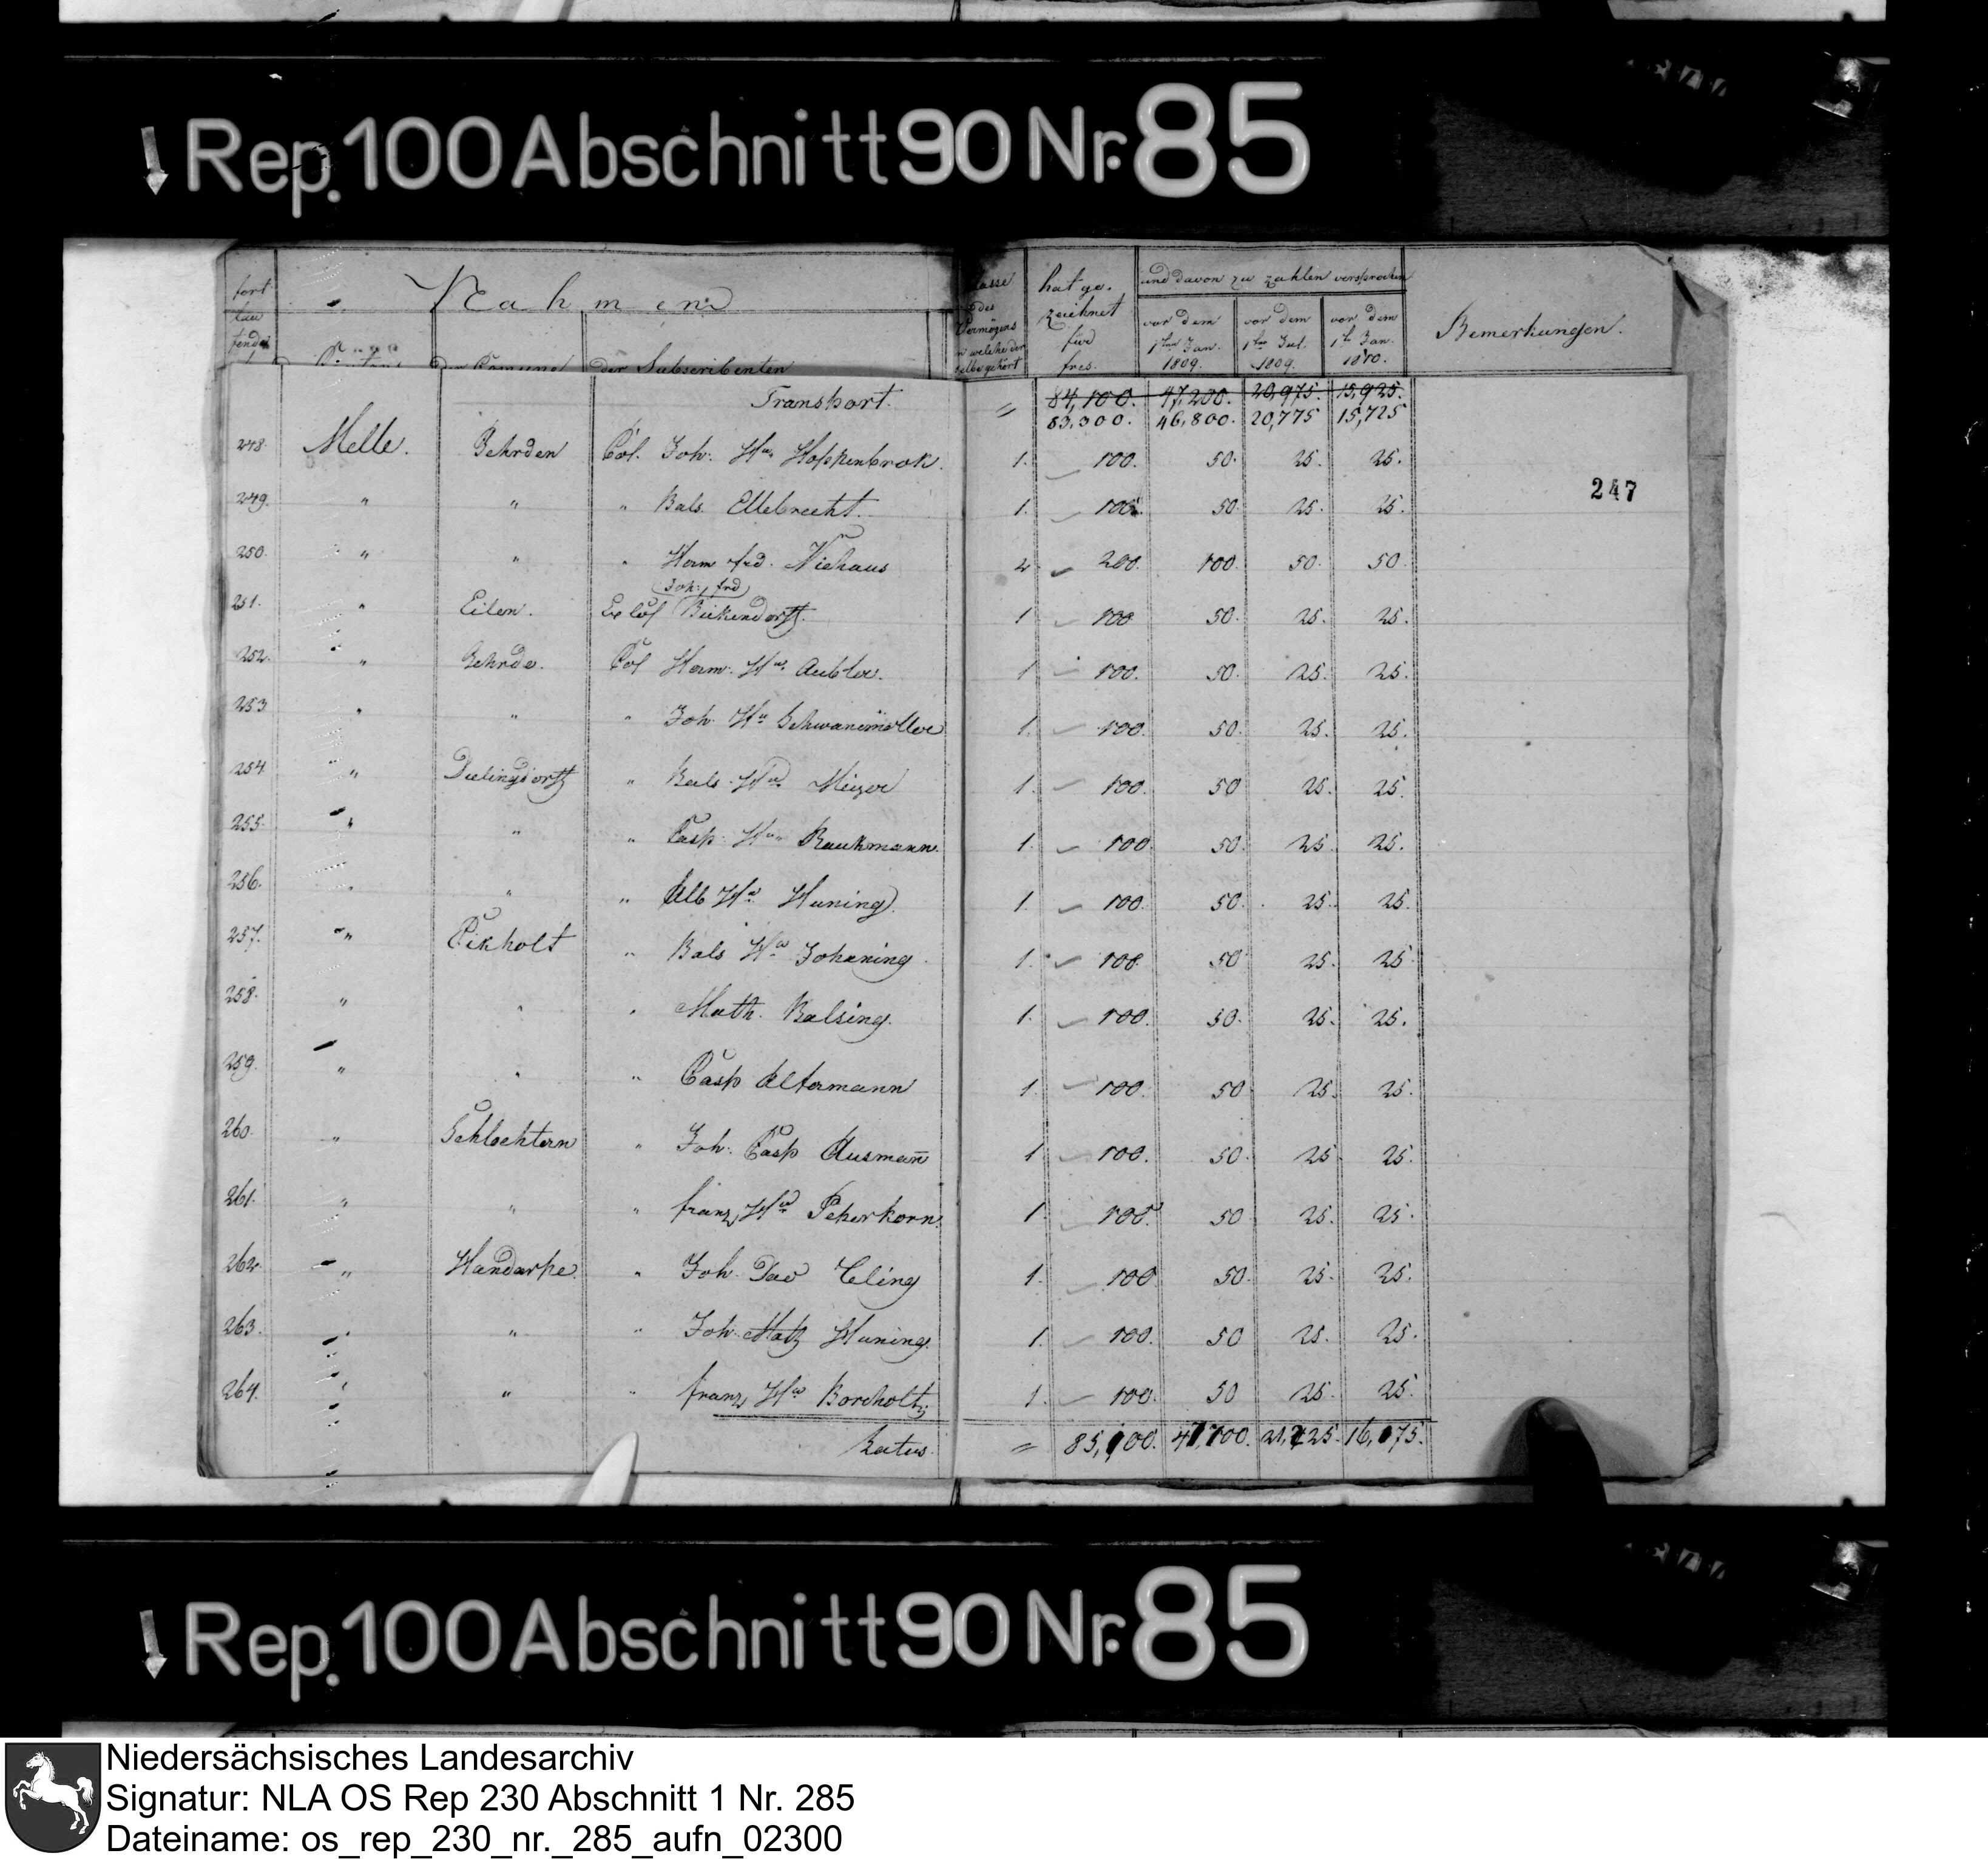 Rep. 100 Abschnitt 90 Nr. 85
fort
lau
fende
Nahmen
Classe
des
Vermögens
in welche der
selbe gehört
hat ge-
zeichnet
für
frcs.
und davon zu zahlen versprochen
vor dem
1ten Jan.
1809.
vor dem
1ten Jul.
1809.
vor dem
1ten Jan.
1810.
Bemerkungen.
der Comune
der Subscribenten
Transport. 84,100. 47,200. 20,975. 15,925.
83,300. 46,800. 20,775 15,725
248. Melle. Gehrden Col. Joh. Hn Hoppenbrok. 1. 100. 50. 25. 25.
247
249. " " " Bals. Ellebrecht. 1. 100. 50. 25. 25.
250. " " " Herm frd. Niehaus 2. 200. 100. 50. 50
Joh. frd
251. " Eilen. 1 100 50. 25. 25.
252. " Gehrde. Col Herm. Hn 1 100. 50. 25. 25.
253 " " " Joh. Hn Schwanemöller 1. 100. 50. 25. 25.
254. " Dielingdorff " Bals. Hn Meyer 1. 100. 50 25. 25.
255. " " " Casp. Hn Raukmann. 1. 100. 50. 25. 25.
256. " " " Alb Hn Huning 1. 100. 50. 25. 25.
257. " Eikholt " Bals Hn Johaning. 1. 100. 50 25. 25
258. " " " Math. Balsing. 1. 100. 50. 25. 25.
259. " " " Casp Altermann 1. 100. 50. 25. 25.
260. " Schlochtern " Joh. Casp Ausman̄ 1 100. 50. 25. 25.
261. " " " franz Hn Pekerkorn. 1. 100. 50 25. 25.
262. " Handarpe. " Joh. 1. 100 50. 25. 25.
263. " " " Joh. Matz Huning. 1. 100. 50 25. 25.
264. " " " franz Hn Borcholt. 1. 100. 50 25. 25.
Latus. 85,100. 47,700. 21,225. 16,175.
Rep. 100 Abschnitt 90 Nr. 85
Niedersächsisches Landesarchiv
Signatur: NLA OS Rep 230 Abschnitt 1 Nr. 285
Dateiname: os_rep_230_nr._285_aufn_02300